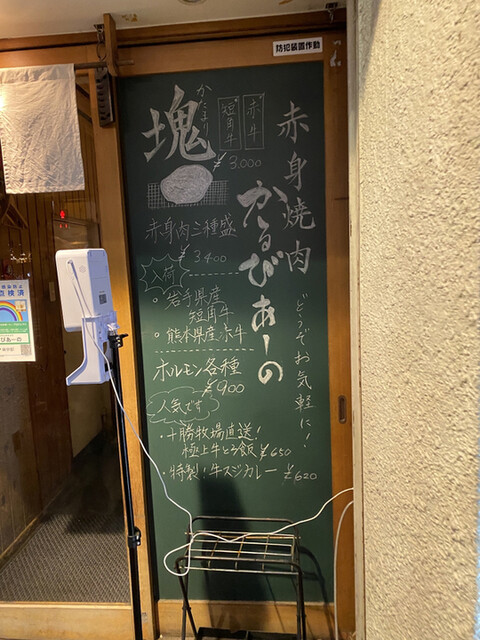 防犯装置作動
赤身焼肉
かるびあーの
どうぞお気軽に!
赤牛
短角牛
かたまり
塊
¥3.000
赤身肉三種盛
¥3400
入荷
・岩手県産
短角牛
・熊本県産赤牛
ホルモン各種
¥900
人気です
・十勝牧場直送!
極上牛とろ飯 ¥650
・特製!牛スジカレー ¥620
点検済
びあーの